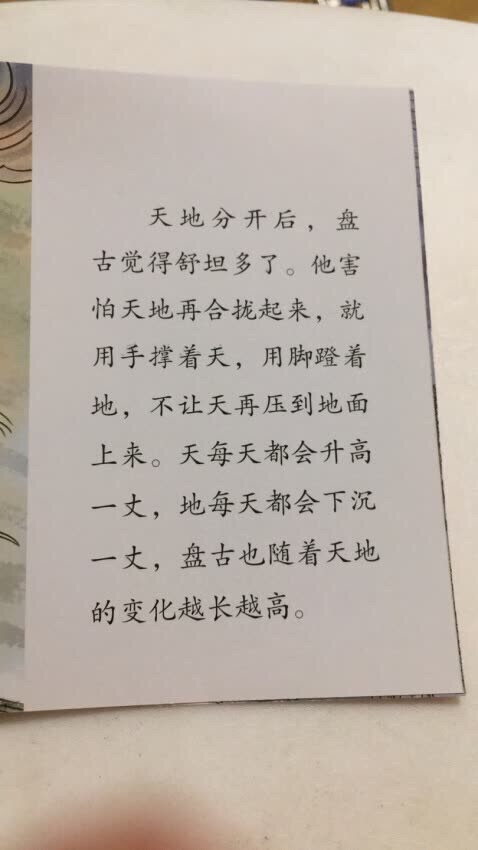 天地分开后，盘
古觉得舒坦多了。他害
怕天地再合拢起来，就
用手撑着天，用脚蹬着
地，不让天再压到地面
上来。天每天都会升高
一丈，地每天都会下沉
一丈，盘古也随着天地
的变化越长越高。